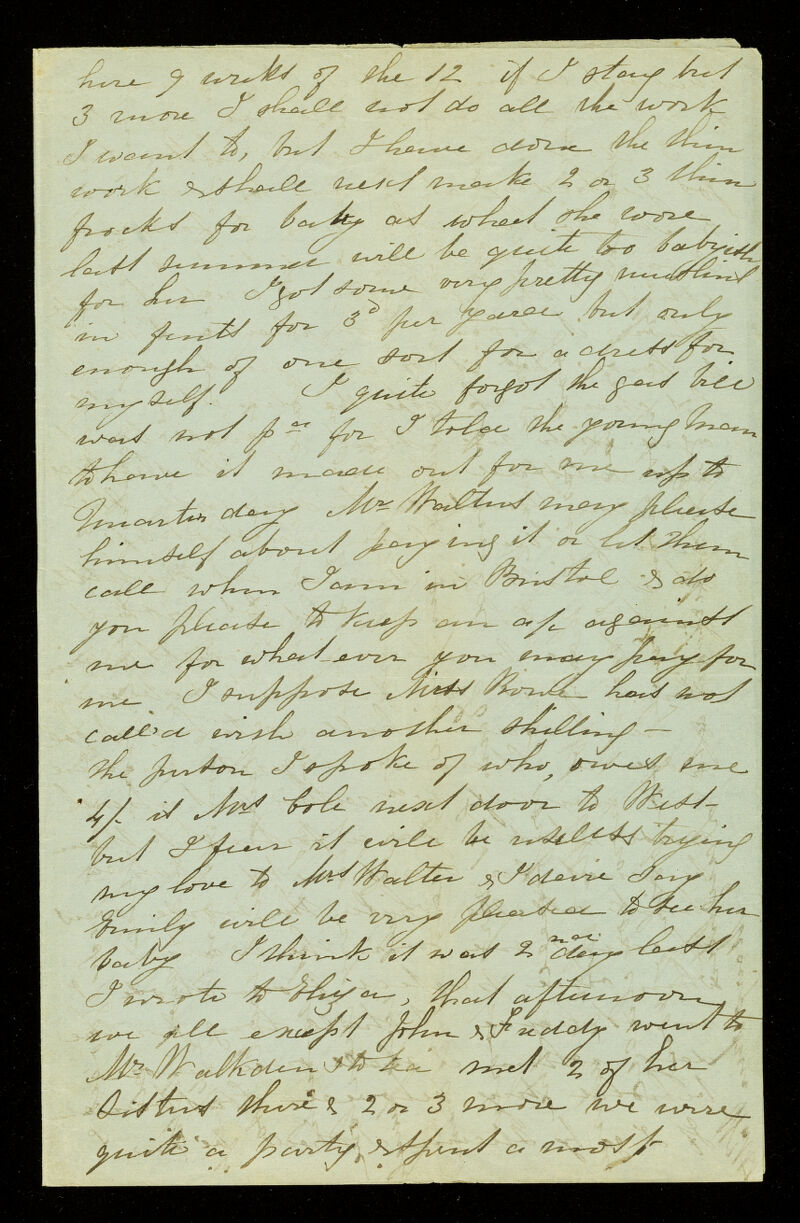 here 9 weeks of the 12 if I stay but
3 more I shall not do all the work
I want to, but I have done the thin
work & shall next make 2 or 3 thin
frocks for baby as what she wore
last summer will be quite too babyish
for her I got some very pretty muslins
in fents for 3d per yard but only
enough of one sort for a dress for
myself. I quite forgot the gas bill
was not pd for I told the young man
to have it made out for me up to
quarter day Mr Walters may please
himself about paying it or let them
call when I am in Bristol & do
you please to keep an a/c against
me for what ever you may pay for
me I suppose has not
call'd with another shilling —
the person I spoke of who, owes me
4/- is Mrs Cole next door to West-
but I fear it will be useless trying
my love to Mrs Walter & I dare say
Emily will be very pleased to see her
baby I think it was day last
I wrote to Eliza, that afternoon
we all except John & Freddy went to
Mrs Walkdens to tea met 2 of her
Sisters there & 2 or 3 more we were
quite a party, & spent a most